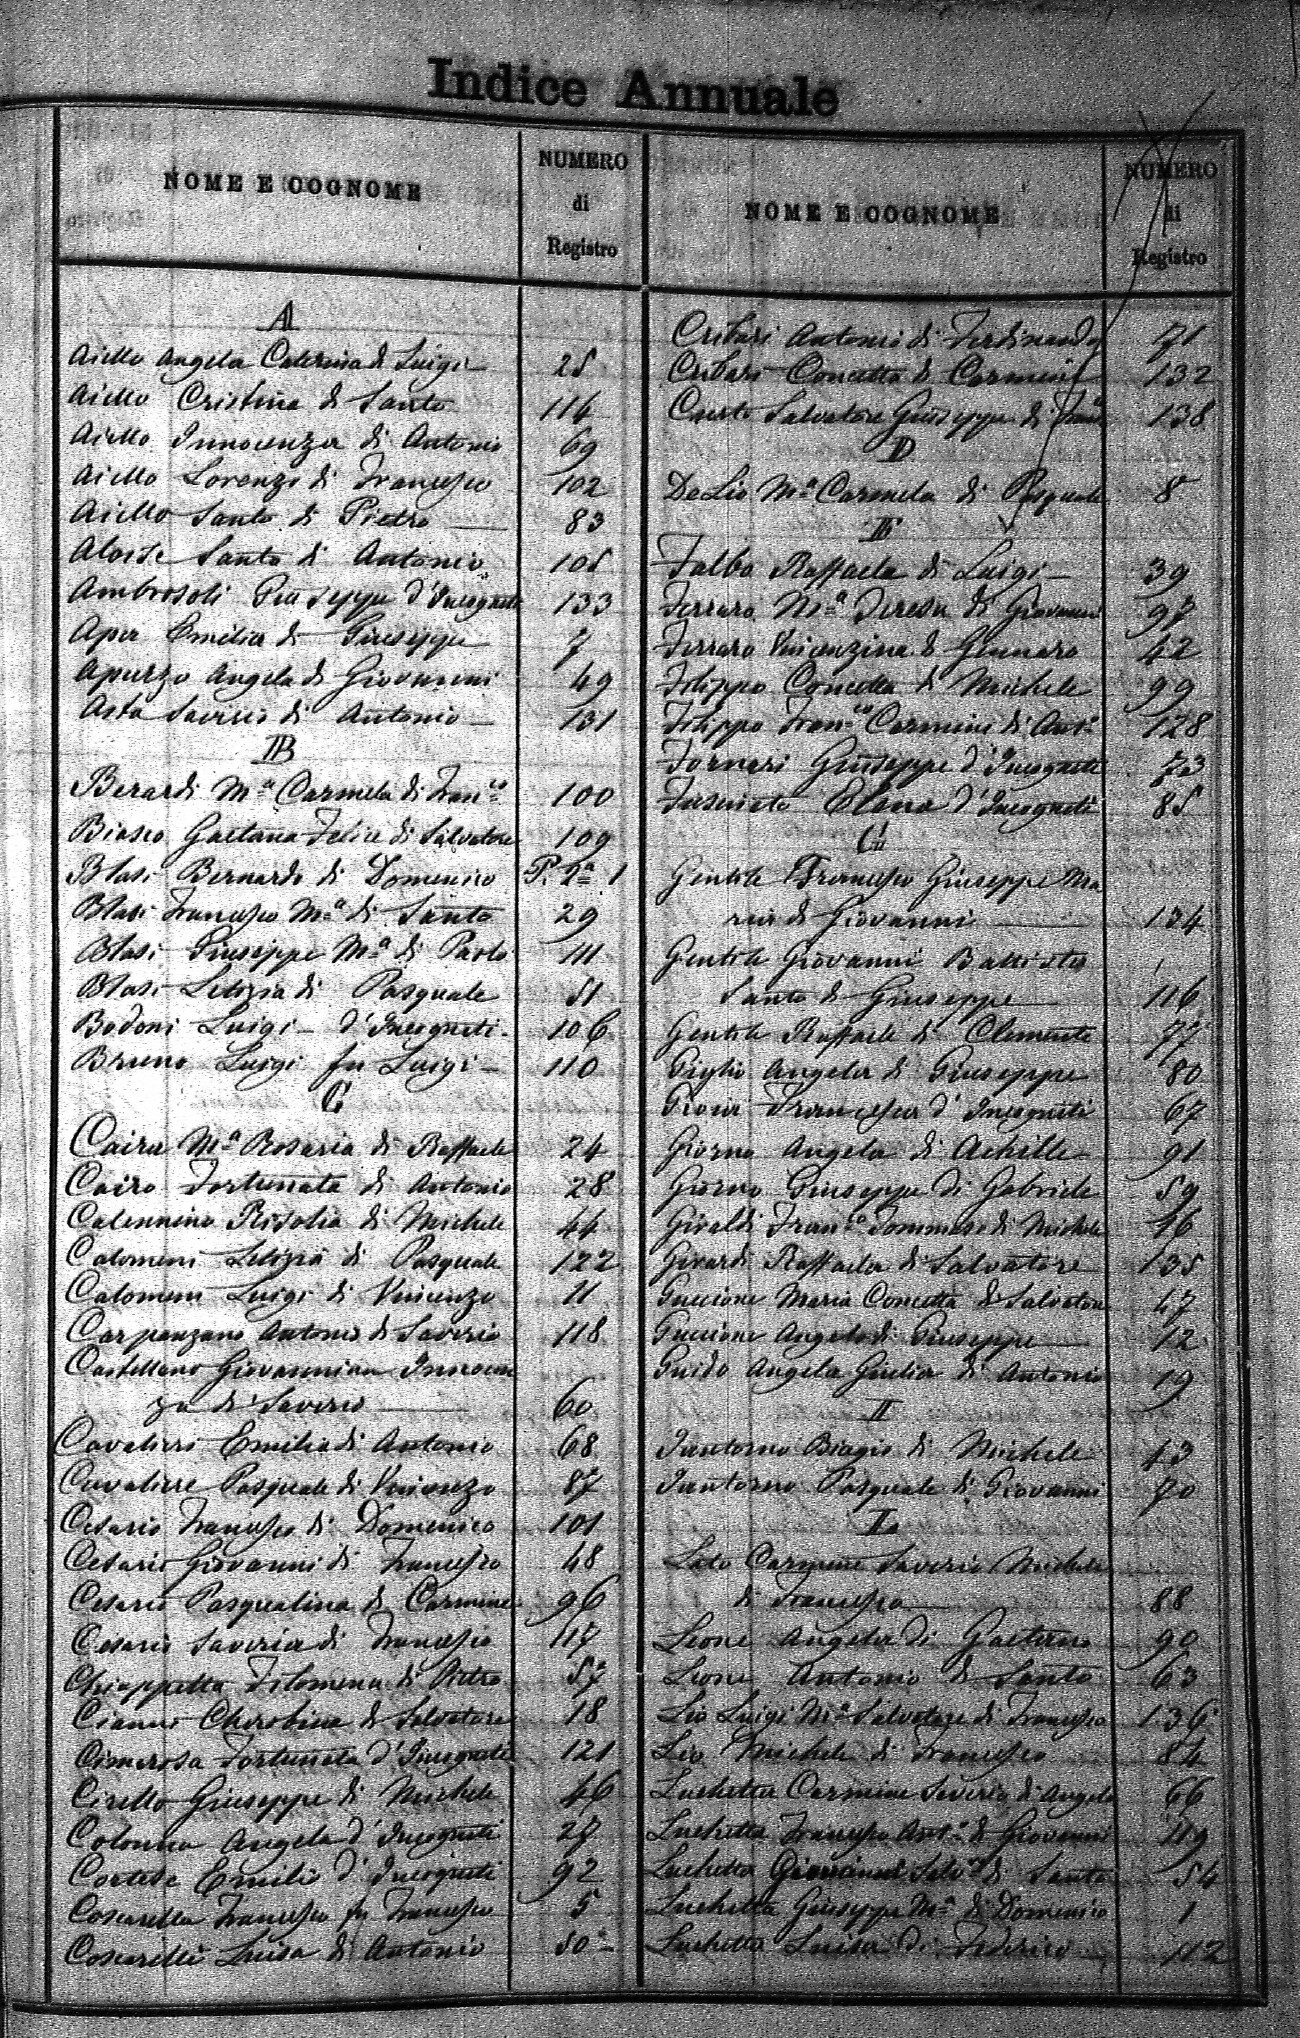 Indice Annuale
NOME E COGNOME
NUMERO
di
Registro
A
Aiello Angela Caterina di Luigi 25
Aiello Cristina di Santo 114
Aiello Innocenza di Antonio 69
Aiello Lorenzo di Francesco 102
Aiello Santo di Pietro 83
Aloise Santo di Antonio 105
Ambrosoli Giuseppe d'Incogniti 133
Aper Emilia di Giuseppe 7
Apurzo Angela di Giovanni 49
Asta Saverio di Antonio 131
B
Berardi Mª Carmela di Franco 100
Biasio Gaetana Felice di Salvatore 109
Blasi Bernardo di Domenico P. 2ª 1
Blasi Francesco Mª di Santo 29
Blasi Giuseppe Mª di Paolo 111
Blasi Letizia di Pasquale 51
Bodoni Luigi d'Incogniti 106
Bruno Luigi fu Luigi 110
C
Caira Mª Rosaria di Raffaele 24
Cairo Fortunata di Antonio 28
Calennino Risolia di Michele 44
Calomeni Letizia di Pasquale 122
Calomeni Luigi di Vincenzo 11
Carpanzano Antonio di Saverio 118
Castellano Giovannina Innocen
za di Saverio 60
Cavalieri Emilia di Antonio 68
Cavaliere Pasquale di Vincenzo 87
Cesario Francesco di Domenico 101
Cesario Giovanni di Francesco 48
Cesario Pasqualina di Carmine 96
Cesario Saveria di Francesco 117
Chiappetta Filomena di Pietro 57
Cianno Cherobina di Salvatore 18
Cimerosa Fortunata d'Incogniti 121
Cirello Giuseppe di Michele 46
Colonna Angela d'Incogniti 27
Cortese Emilio d'Incogniti 92
Coscarella Francesco fu Francesco 5
Coscarelli Luisa di Antonio 50
NOME E COGNOME
NUMERO
di
Registro
Cribari Antonio di Ferdinando 71
Cribari Concetta di Carmine 132
Curto Salvatore Giuseppe di 138
D
De Lio Mª Carmela di Pasquale 8
F
Falbo Raffaela di Luigi 39
Ferraro Mª Teresa di Giovanni 97
Ferraro Vincenzina di Gennaro 42
Filippo Concetta di Michele 99
Filippo Franco Carmine di Antº 128
Fornari Giuseppe d'Incogniti 73
Elena d'Incogniti 85
G
Gentile Francesco Giuseppe Ma
ria di Giovanni 134
Gentile Giovanni Battista
Santo di Giuseppe 116
Gentile Raffaele di Clemente 77
Giglio Angela di Giuseppe 80
Gioia Francesca d'Incogniti 67
Giorno Angela di Achille 91
Giorno Giuseppe di Gabriele 59
Giraldi Franco Tommaso di Michele 76
Girardi Raffaela di Salvatore 135
Guccione Maria Concetta di Salvatore 47
Guccione Angelo di Giuseppe 12
Guido Angela Giulia di Antonio 19
I
Iantorno Biagio di Michele 43
Iantorno Pasquale di Giovanni 70
L
Lato Carmine Saverio Michele
di Francesco 88
Leone Angela di Gaetano 90
Leone Antonio di Santo 63
Lio Luigi Mª Salvatore di Francesco 136
Lio Michele di Francesco 84
Luchetta Carmine Saverio di Angelo 66
Luchetta Francesco Antº di Giovanni 119
Luchetta Giovanni Salvre di Santo 54
Luchetta Giuseppe Mª di Domenico 1
Luchetta Luisa di Federico 112